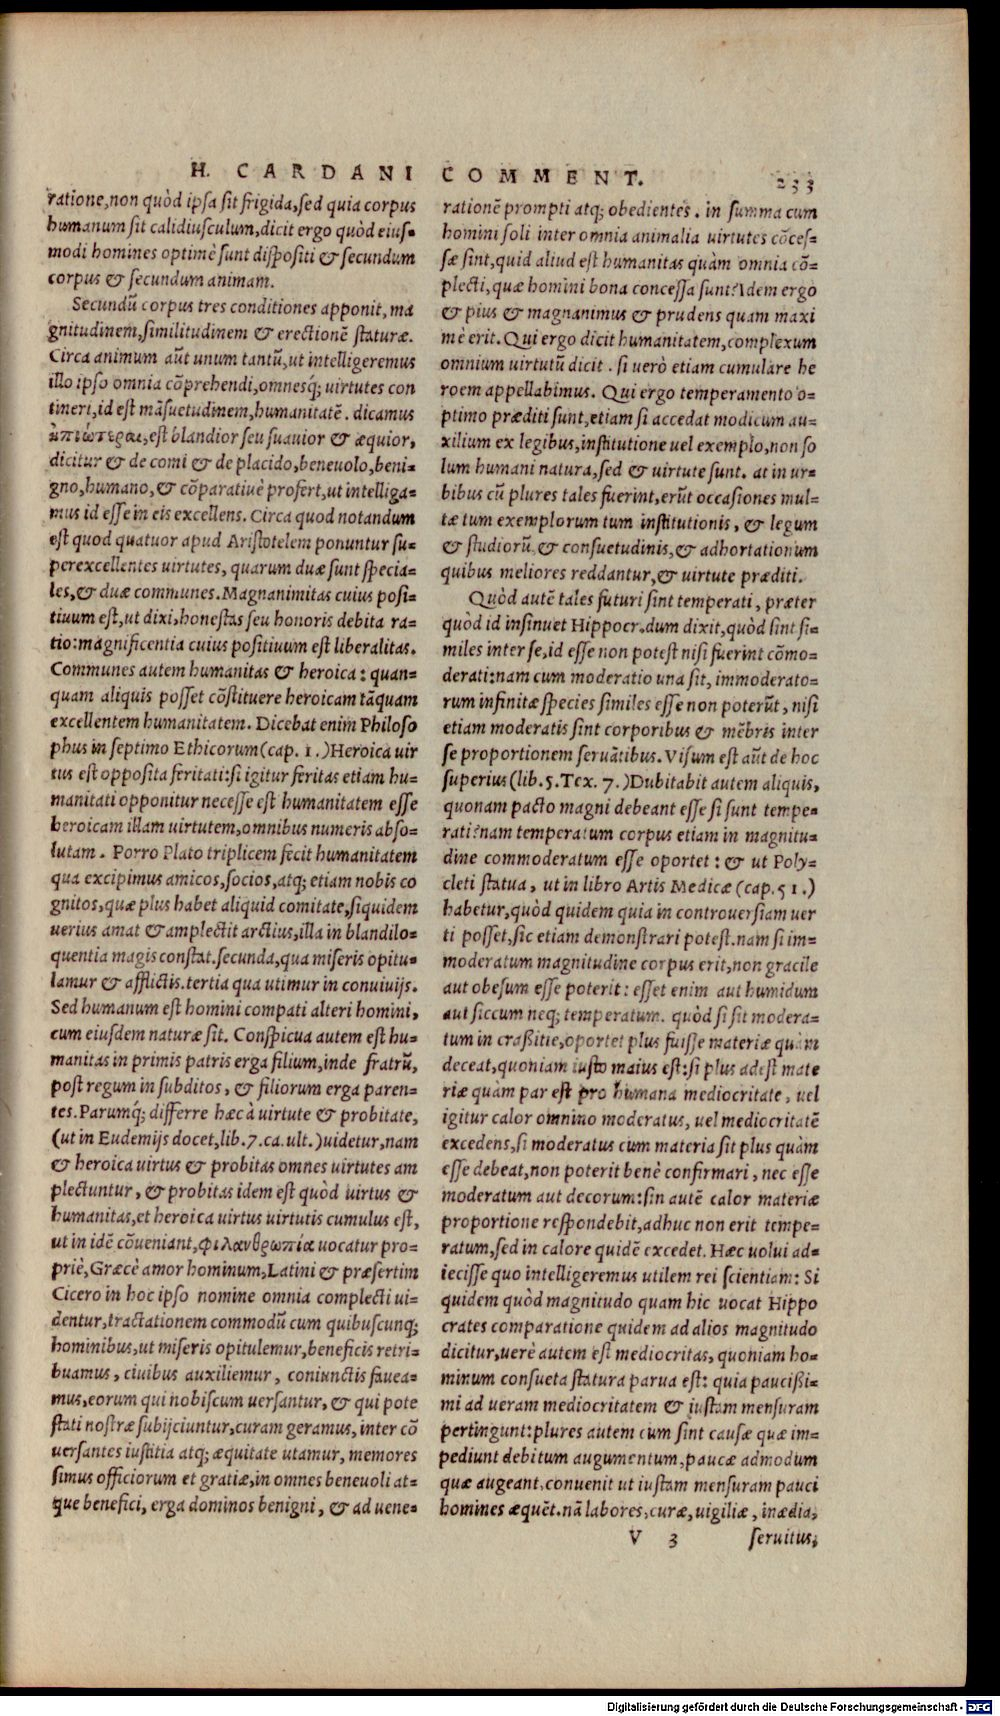 H. CARDANI COMMENT. 233
ratione,non quòd ipsa sit frigida,sed quia corpus
humanum sit calidiusculum,dicit ergo quòd eius-
modi homines optimè sunt dispositi & secundum
corpus & secundum animam.
Secundũ corpus tres conditiones apponit, ma
gnitudinem,similitudinem & erectionẽ staturæ.
Circa animum aũt unum tantũ,ut intelligeremus
illo ipso omnia cõprehendi,omnesq; uirtutes con
tineri,id est mãsuetudinem,humanitatẽ. dicamus
ἠπιώτεραι,est blandior seu suauior & æquior,
dicitur & de comi & de placido,beneuolo,beni-
gno,humano,& cõparatiuè profert,ut intelliga-
mus id esse in eis excellens. Circa quod notandum
est quod quatuor apud Aristotelem ponuntur su-
perexcellentes uirtutes, quarum duæ sunt specia-
les,& duæ communes. Magnanimitas cuius posi-
tiuum est,ut dixi,honestas seu honoris debita ra-
tio:magnificentia cuius positiuum est liberalitas.
Communes autem humanitas & heroica: quan-
quam aliquis posset cõstituere heroicam tãquam
excellentem humanitatem. Dicebat enim Philoso
phus in septimo Ethicorum(cap. 1.)Heroica uir
tus est opposita feritati:si igitur feritas etiam hu-
manitati opponitur necesse est humanitatem esse
heroicam illam uirtutem,omnibus numeris abso-
lutam. Porro Plato triplicem fecit humanitatem
qua excipimus amicos,socios,atq; etiam nobis co
gnitos,quæ plus habet aliquid comitate,siquidem
uerius amat & amplectit arctius,illa in blandilo-
quentia magis constat.secunda,qua miseris opitu-
lamur & afflictis.tertia qua utimur in conuiuijs.
Sed humanum est homini compati alteri homini,
cum eiusdem naturæ sit. Conspicua autem est hu-
manitas in primis patris erga filium,inde fratrũ,
post regum in subditos, & filiorum erga paren-
tes.Parumq́; differre hæc à uirtute & probitate,
(ut in Eudemijs docet,lib.7.ca.ult.)uidetur,nam
& heroica uirtus & probitas omnes uirtutes am
plectuntur, & probitas idem est quòd uirtus &
humanitas,et heroica uirtus uirtutis cumulus est,
ut in idẽ cõueniant,φιλανθρωπία uocatur pro-
priè,Græcè amor hominum,Latini & præsertim
Cicero in hoc ipso nomine omnia complecti ui-
dentur,tractationem commodũ cum quibuscunq;
hominibus,ut miseris opitulemur,beneficis retri-
buamus, ciuibus auxiliemur, coniunctis fauea-
mus,eorum qui nobiscum uersantur, & qui pote
stati nostræ subijciuntur,curam geramus,inter cõ
uersantes iustitia atq; æquitate utamur, memores
simus officiorum et gratiæ,in omnes beneuoli at-
que benefici, erga dominos benigni, & ad uene-
rationẽ prompti atq; obedientes. in summa cum
homini soli inter omnia animalia uirtutes cõces-
sæ sint,quid aliud est humanitas quàm omnia cõ-
plecti,quæ homini bona concessa sunt? Idem ergo
& pius & magnanimus & prudens quam maxi
mè erit. Qui ergo dicit humanitatem,complexum
omnium uirtutũ dicit. si uerò etiam cumulare he
roem appellabimus. Qui ergo temperamento o-
ptimo præditi sunt,etiam si accedat modicum au-
xilium ex legibus,institutione uel exemplo,non so
lum humani natura,sed & uirtute sunt. at in ur-
bibus cũ plures tales fuerint,erũt occasiones mul-
tæ tum exemplorum tum institutionis, & legum
& studiorũ,& consuetudinis,& adhortationum
quibus meliores reddantur,& uirtute præditi.
Quòd autẽ tales futuri sint temperati, præter
quòd id insinuet Hippocr.dum dixit,quòd sint si-
miles inter se,id esse non potest nisi fuerint cõmo-
derati:nam cum moderatio una sit, immoderato-
rum infinitæ species similes esse non poterũt, nisi
etiam moderatis sint corporibus & mẽbris inter
se proportionem seruãtibus. Visum est aũt de hoc
superius(lib.5.Tex. 7.)Dubitabit autem aliquis,
quonam pacto magni debeant esse si sunt tempe-
rati?nam temperatum corpus etiam in magnitu-
dine commoderatum esse oportet: & ut Poly-
cleti statua, ut in libro Artis Medicæ(cap.51.)
habetur,quòd quidem quia in controuersiam uer
ti posset,sic etiam demonstrari potest.nam si im-
moderatum magnitudine corpus erit,non gracile
aut obesum esse poterit: esset enim aut humidum
aut siccum neq; temperatum. quòd si sit modera-
tum in craßitie,oportet plus fuisse materiæ quàm
deceat,quoniam iusto maius est:si plus adest mate
riæ quàm par est pro humana mediocritate, uel
igitur calor omnino moderatus, uel mediocritatẽ
excedens,si moderatus cum materia sit plus quàm
esse debeat,non poterit benè confirmari, nec esse
moderatum aut decorum:sin autẽ calor materiæ
proportione respondebit,adhuc non erit tempe-
ratum,sed in calore quidẽ excedet. Hæc uolui ad-
iecisse quo intelligeremus utilem rei scientiam: Si
quidem quòd magnitudo quam hic uocat Hippo
crates comparatione quidem ad alios magnitudo
dicitur,uerè autem est mediocritas, quoniam ho-
minum consueta statura parua est: quia paucißi-
mi ad ueram mediocritatem & iustam mensuram
pertingunt:plures autem cum sint causæ quæ im-
pediunt debitum augumentum,paucæ admodum
quæ augeant,conuenit ut iustam mensuram pauci
homines æquẽt.nã labores,curæ,uigiliæ, inædia,
V 3 seruitus,
Digitalisierung gefördert durch die Deutsche Forschungsgemeinschaft - DFG